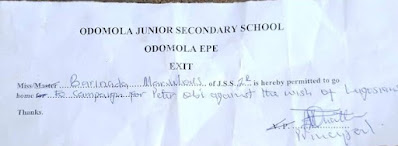 ODOMOLA JUNIOR SECONDARY SCHOOL
ODOMOLA EPE
EXIT
Miss/Master Barinada of J.S.S. 2B is hereby permitted to go
home to Campaign for Peter Obi against the wish of Lagosians
Thanks.
V.P.
Principal.